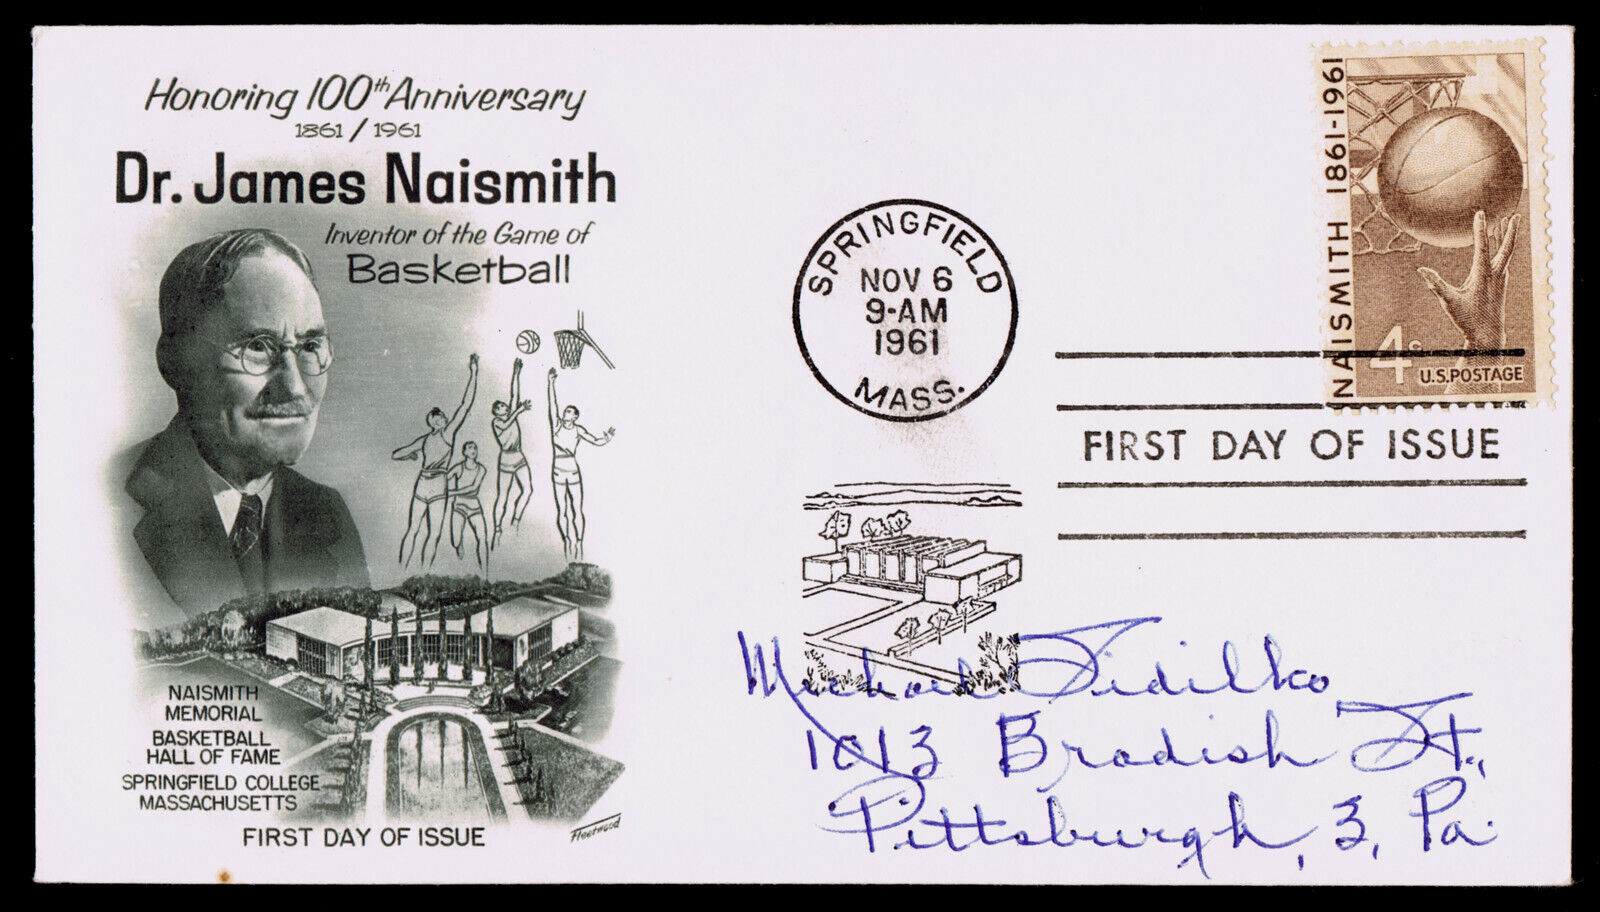 Honoring 100th Anniversary
1861 / 1961
Dr. James Naismith
Inventor of the Game of
Basketball
NAISMITH
MEMORIAL
BASKETBALL
HALL OF FAME
SPRINGFIELD COLLEGE
MASSACHUSETTS
FIRST DAY OF ISSUE
Fleetwood
SPRINGFIELD
NOV 6
9-AM
1961
MASS.
NAISMITH 1861-1961
4c
U.S. POSTAGE
FIRST DAY OF ISSUE
Michael Sidilko
1013 Bradish St.,
Pittsburgh, 3, Pa.